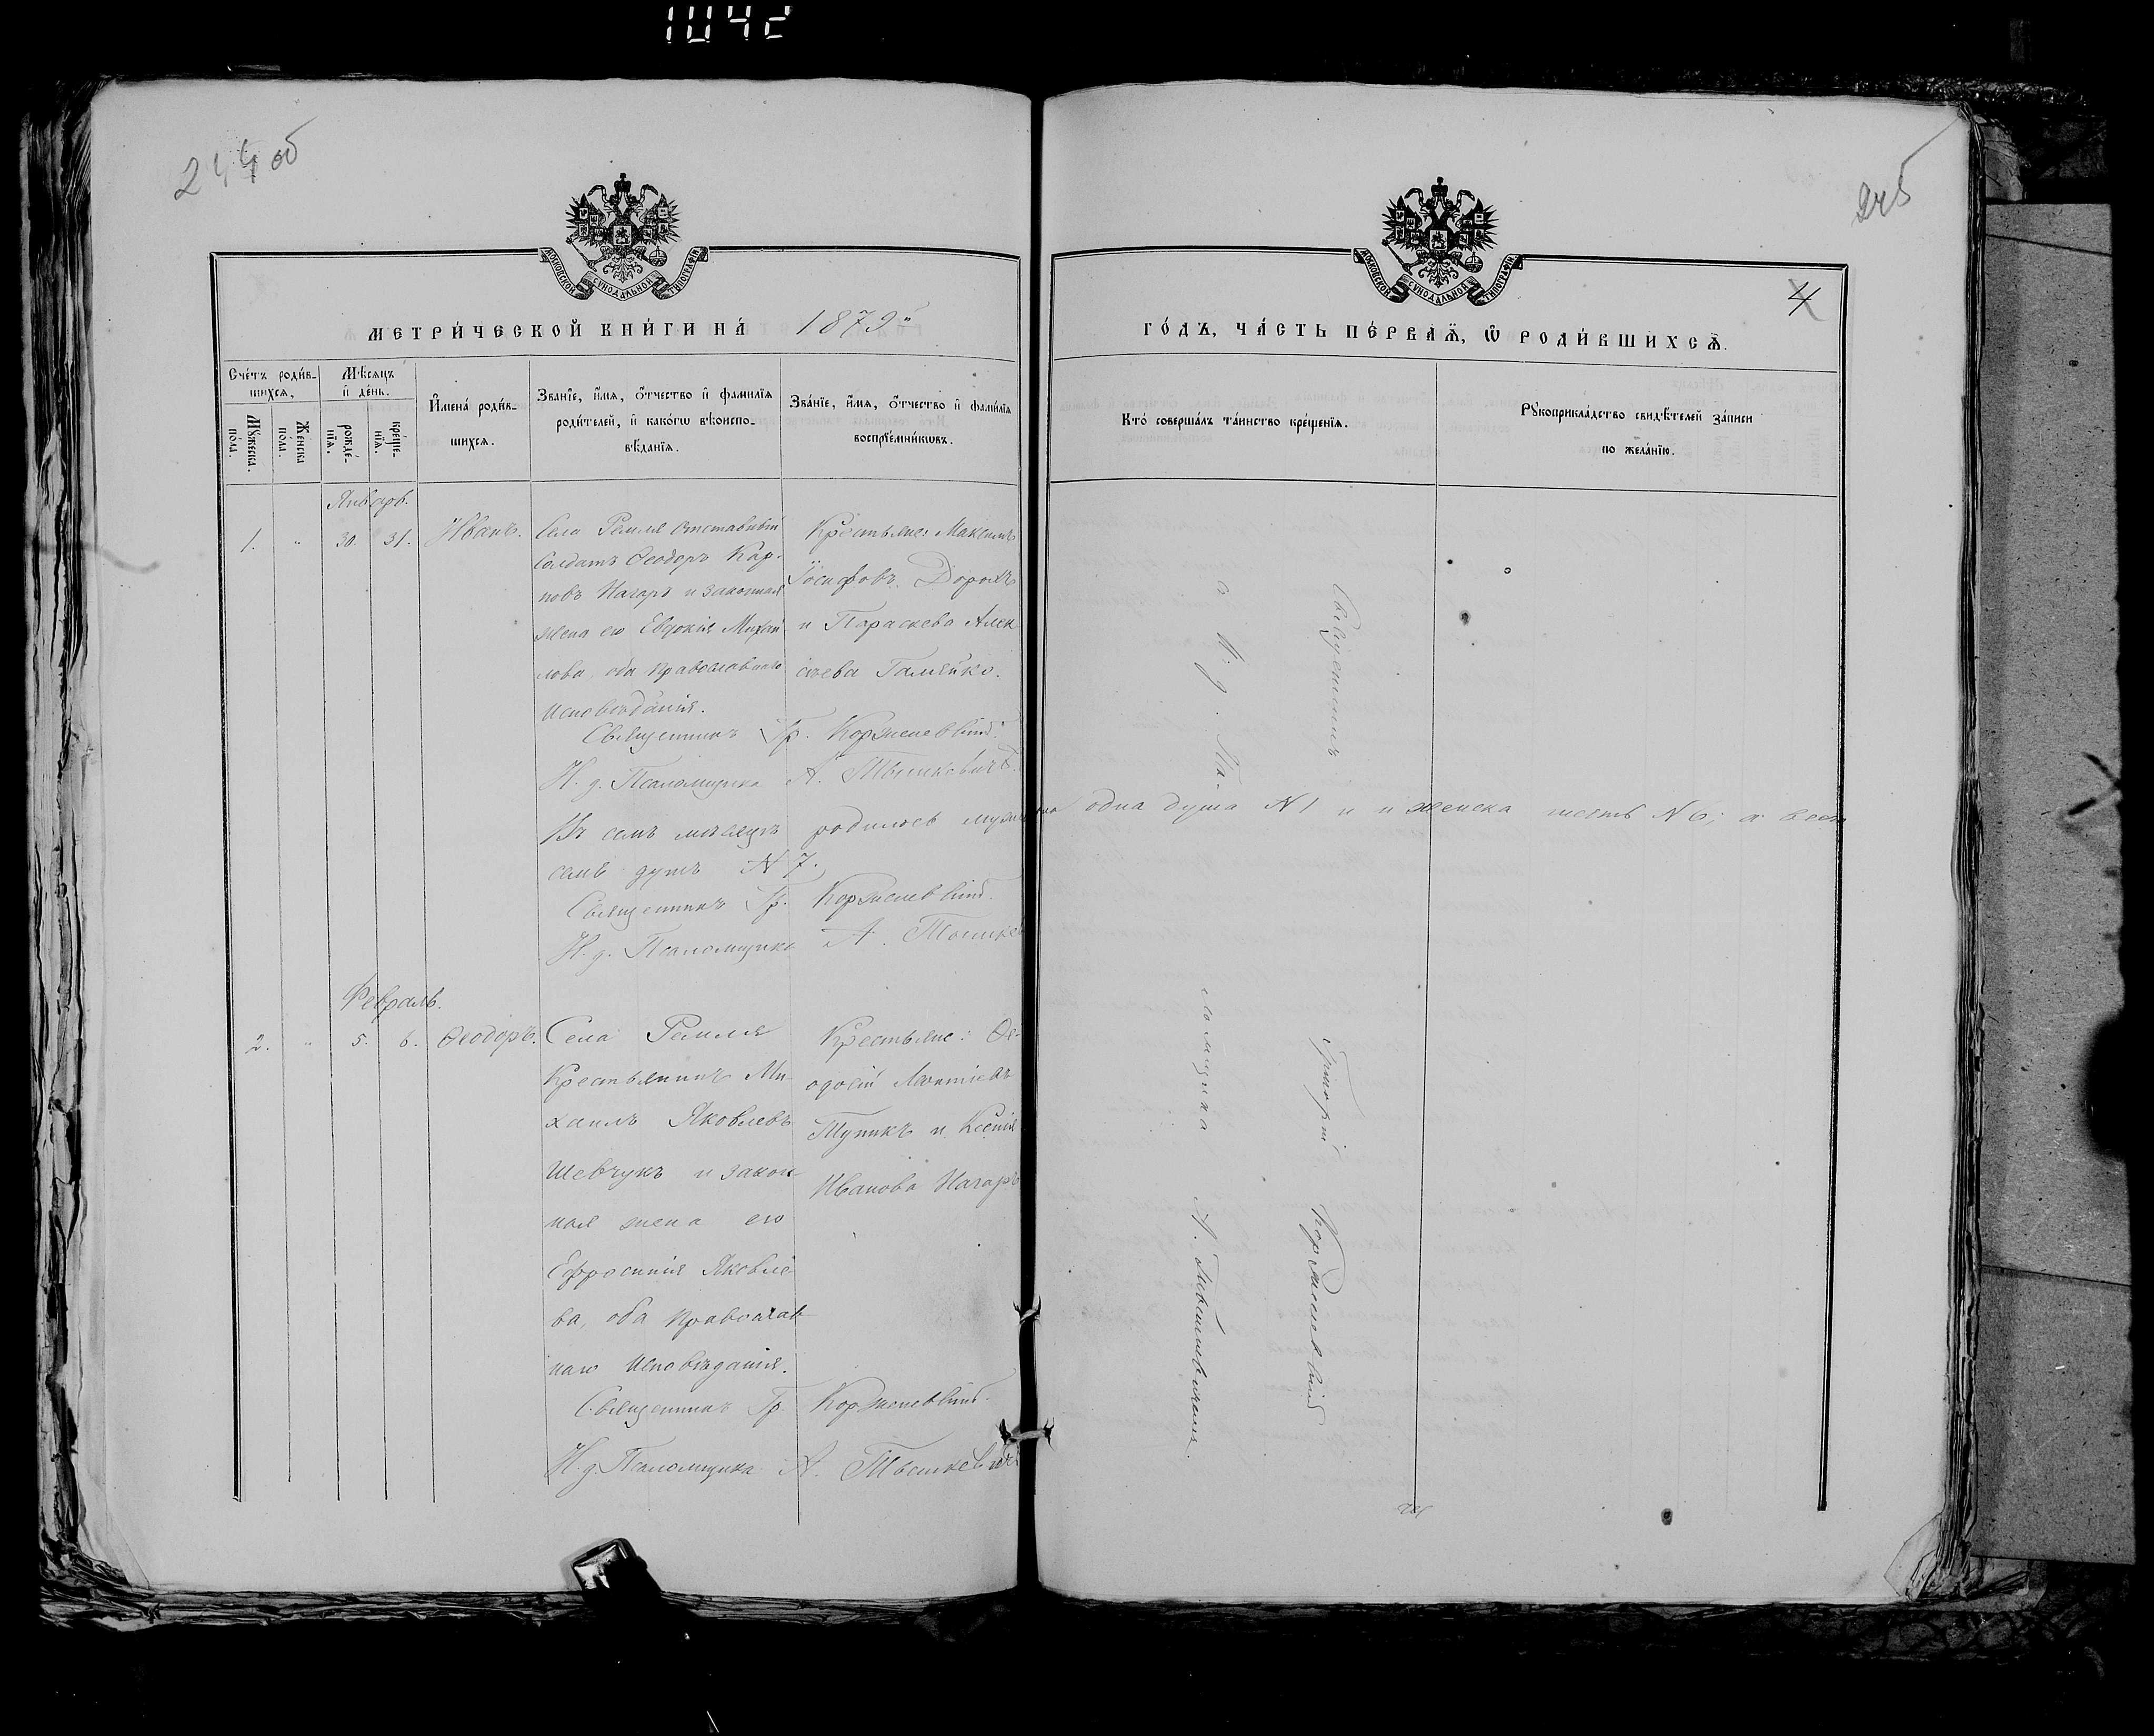 1042
244 об
245
4
МОСКОВСКОЙ СУНОДАЛЬНОЙ ТИПОГРАФІИ
МОСКОВСКОЙ СУНОДАЛЬНОЙ ТИПОГРАФІИ
МЕТРИ́ЧЕСКОЙ КНИ́ГИ НА́ 1879й
ГО́ДЪ, ЧА́СТЬ ПЕ́РВАѦ, Ѿ РОДИ́ВШИХСѦ.
Сче́тъ роди́в-
шихсѧ,
Мꙋжеска по́ла.
Же́нска по́ла.
Мѣсѧцъ
и де́нь.
рожде́-
нїѧ.
креще-
нїѧ.
И҆мена̀ роди́в-
шихсѧ.
Зва́нїе, и҆́мѧ, о҆́тчество и҆ фамилїѧ
роди́телей, и҆ како́гѡ вѣ́роиспо-
вѣ́данїѧ.
Зва́нїе, и҆́мѧ, о҆́тчество и҆ фами́лїѧ
воспрїе́мникѡвъ.
Кто̀ соверша́лъ та́инство креще́нїѧ.
Рꙋкоприкла́дство свидѣ́телей за́писи
по жела́нїю.
Январь.
1. " 30. 31. Иванъ.
Села Ремля отставный
солдатъ Ѳеодоръ Кар-
повъ Нагаръ и законная
жена его Евдокія Михай-
лова, оба православнаго
исповѣданія.
Крестьяне: Максимъ
Іосифовъ Дорохъ
и Параскева Алек-
сѣева Гамейко.
Священникъ Гр. Корженевскій.
И. д. Псаломщика А. Тышкевичъ.
Въ семъ мѣсяцѣ родилось мужеска одна душа N 1 и женска шесть N 6; а всего
семь душъ N 7.
Священникъ Гр. Корженевскій.
И. д. Псаломщика А.
Февраль.
2. " 5. 6. Ѳеодоръ.
Села Ремля
Крестьянинъ Ми-
хаилъ Яковлевъ
Шевчукъ и закон-
ная жена его
Ефросинія Яковле-
ва, оба православ-
наго исповѣданія.
Крестьяне: Ѳе-
одосій Леонтіевъ
Тупикъ и Ксенія
Иванова Нагаръ
Священникъ Гр. Корженевскій.
И. д. Псаломщика А. Тышкевичъ
Священникъ Григорій Корженевскій
с И. д. Псаломщика А. Тышкевичемъ.